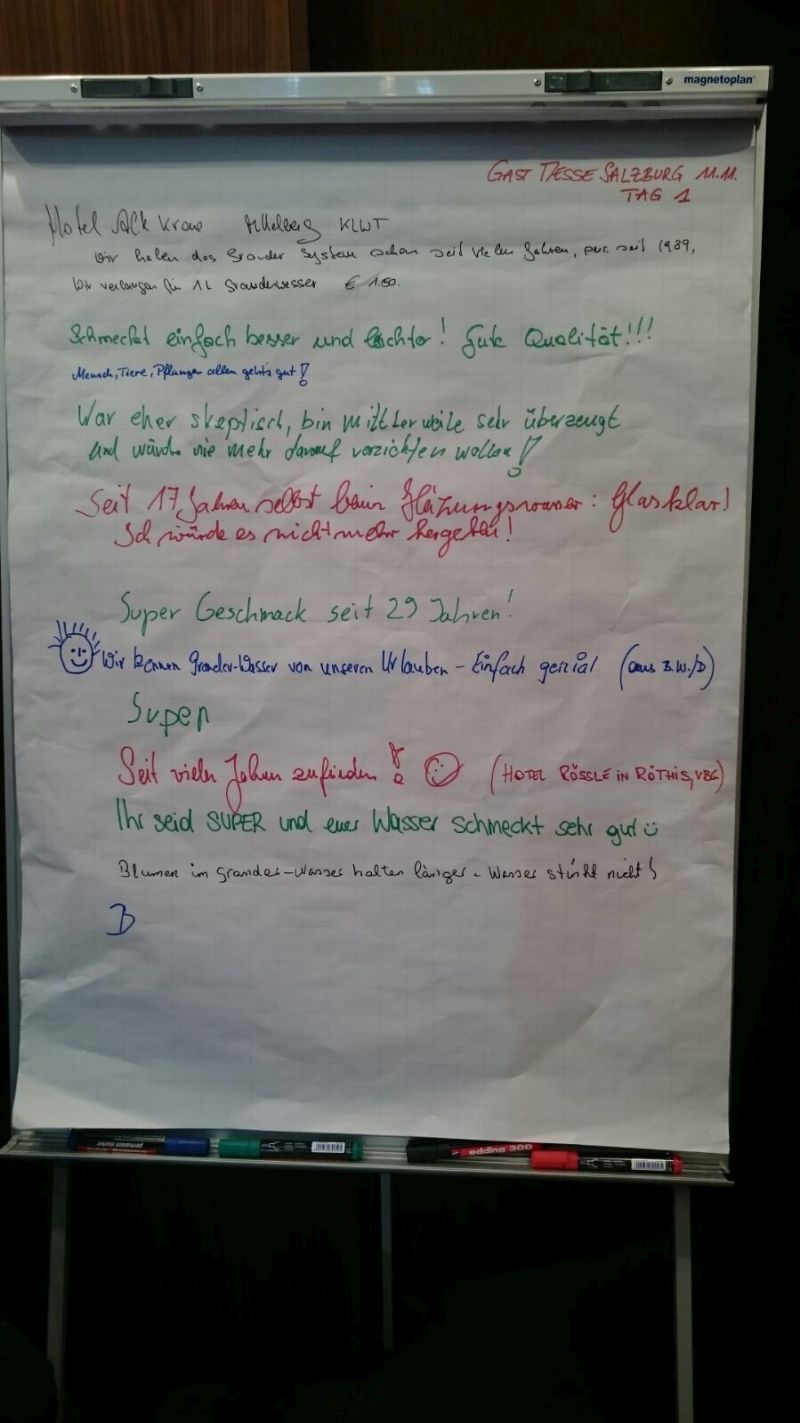 magnetoplan
GAST MESSE SALZBURG 11.11.
TAG 1
Hotel Alte Krone Mittelberg KLWT
Wir haben das Grander System schon seit vielen Jahren, seit 1989,
Wir verlangen für 1L Granderwasser € 1.50.
Schmeckt einfach besser und leichter! Gute Qualität!!!
Mensch, Tiere, Pflanzen allen geht's gut!
War eher skeptisch, bin mittlerweile sehr überzeugt
und würde nie mehr darauf verzichten wollen!
Seit 17 Jahren selbst beim Heizungswasser: Glasklar!
Ich würde es nicht mehr hergeben!
Super Geschmack seit 29 Jahren!
Wir kennen Grander-Wasser von unseren Urlauben - Einfach genial (aus B.W./D)
Super
Seit vielen Jahren zufrieden! (HOTEL RÖSSLE IN RÖTHIS, VBG)
Ihr seid SUPER und euer Wasser schmeckt sehr gut
Blumen im Grander-Wasser halten länger - Wasser stinkt nicht!
B
permanent marker
edding 300